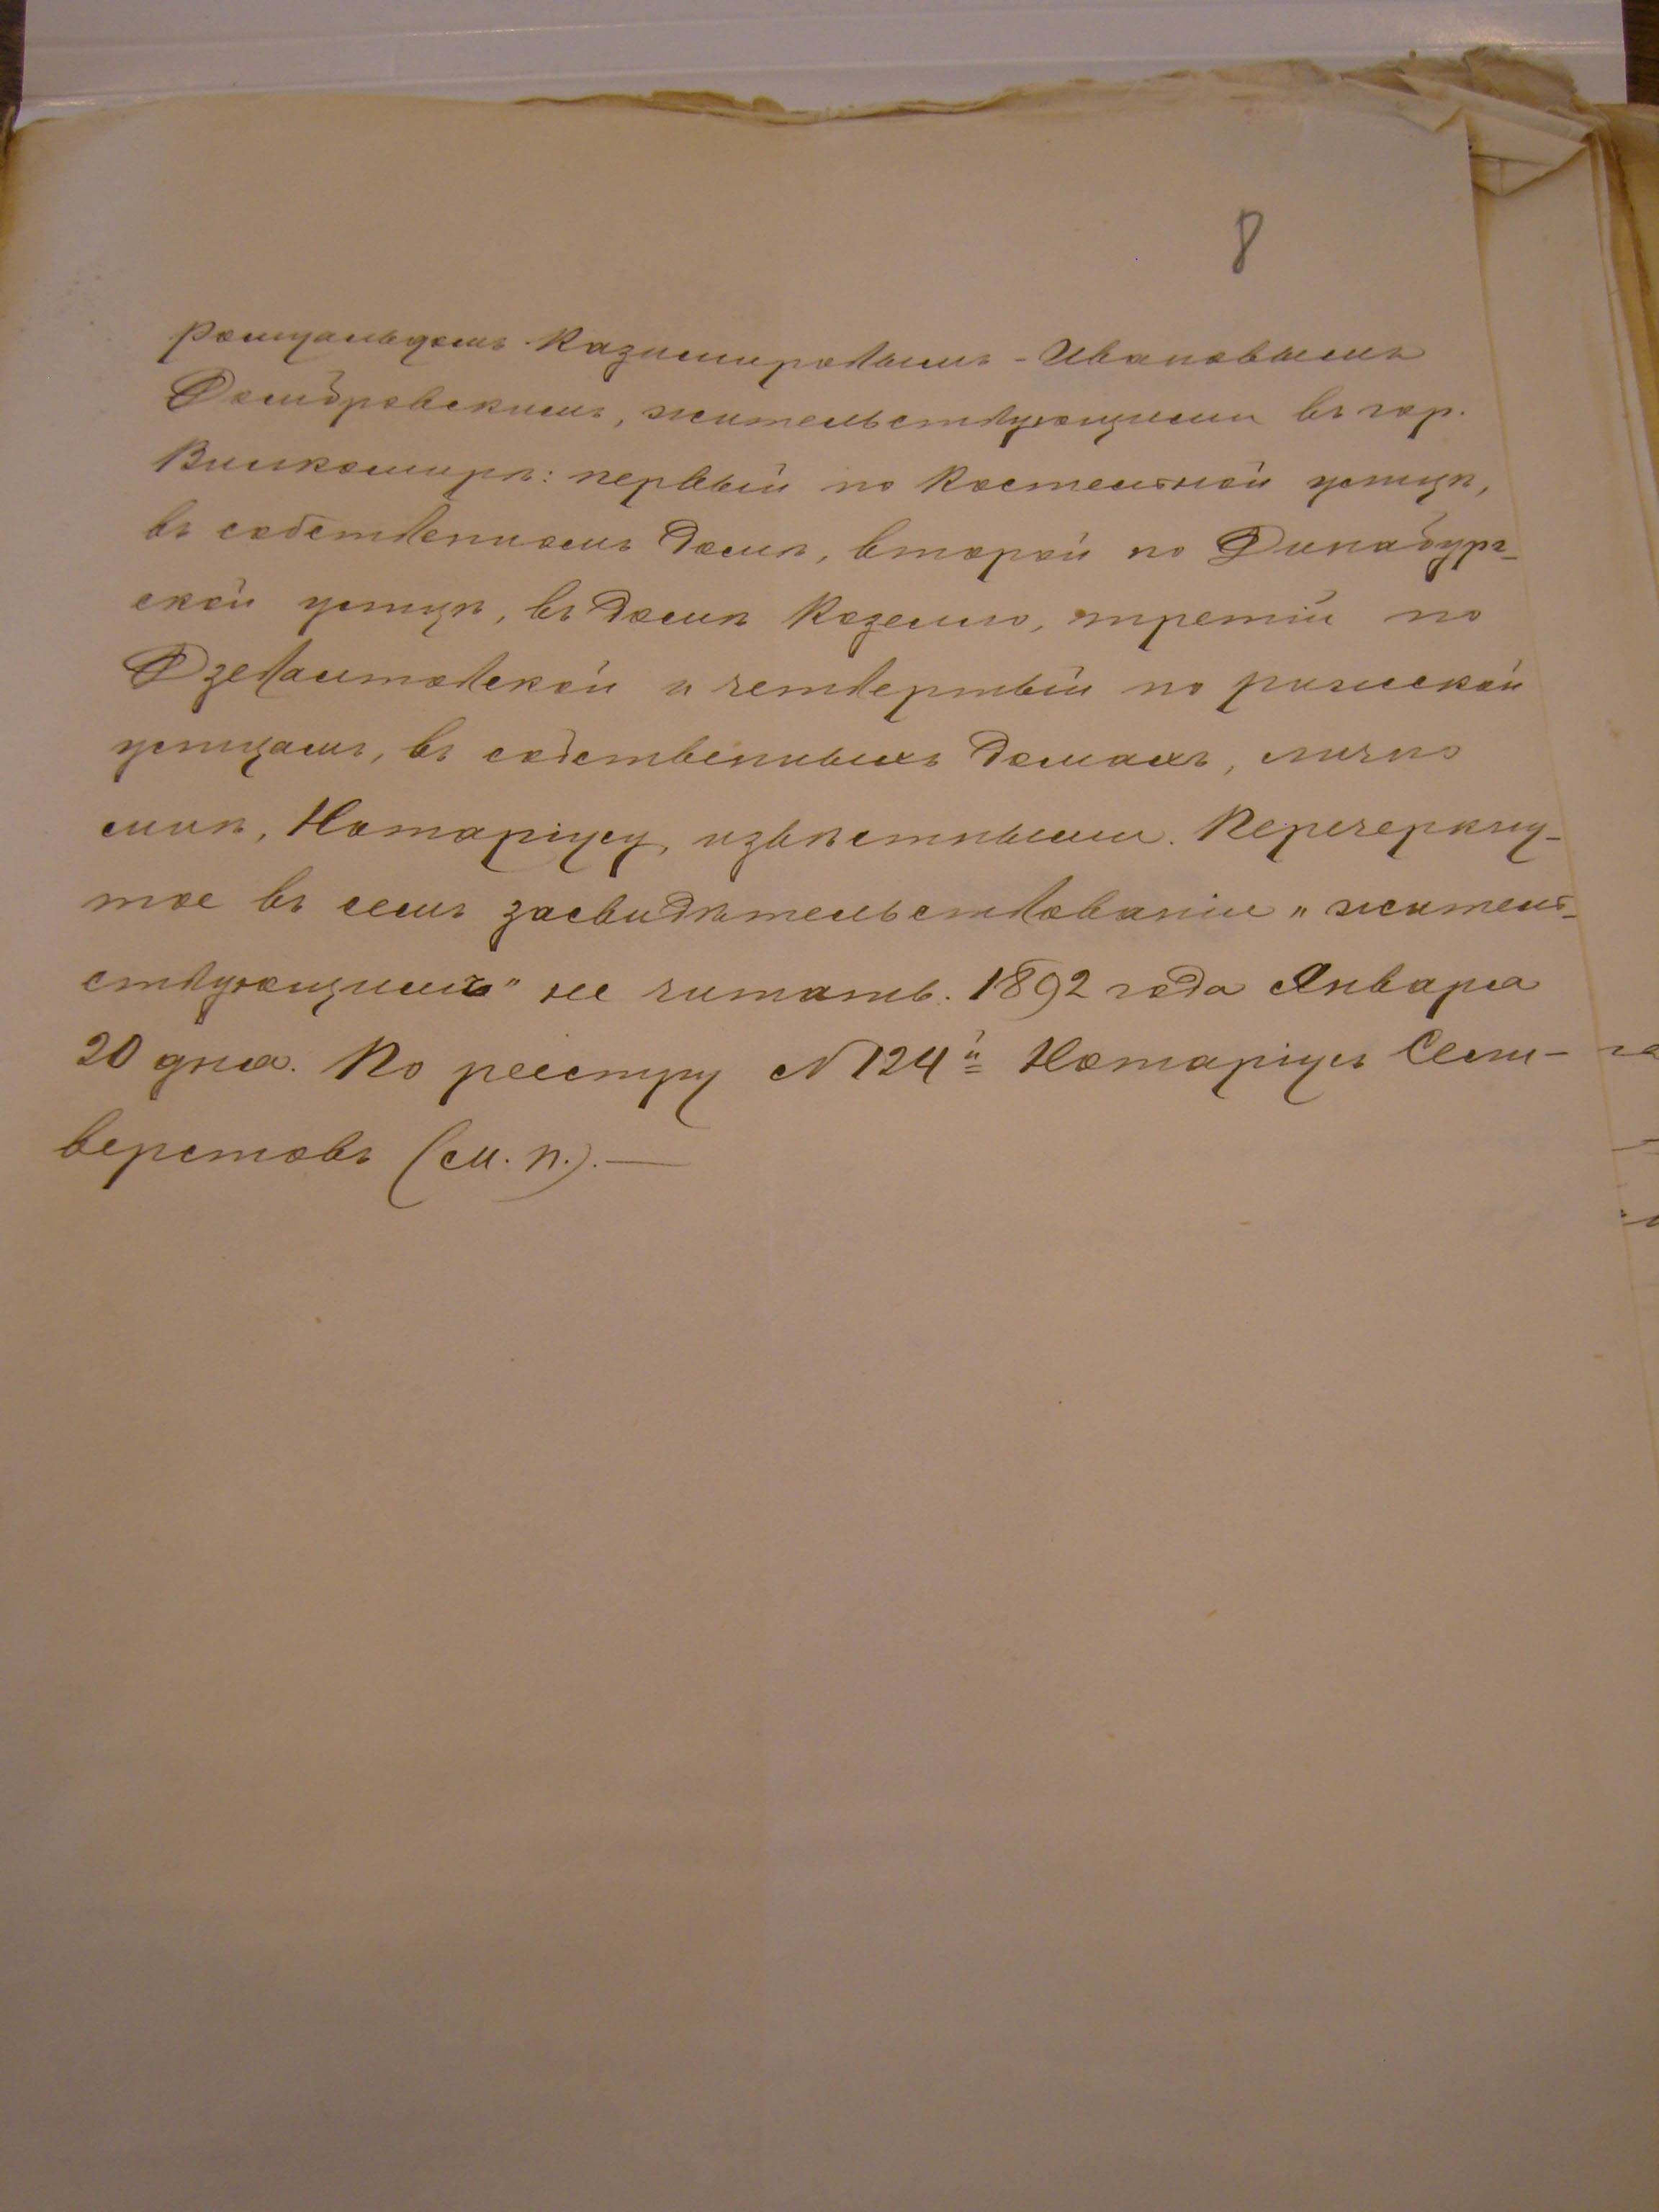 8
Ромуальдомъ Казимировымъ-Ивановымъ
Домбровскимъ, жительствующими въ гор.
Вилкомирѣ: первый по Костельной улицѣ,
въ собственномъ домѣ, второй по Динабург-
ской улицѣ, въ домѣ Козелло, третій по
Дзевалтовской и четвертый по рижской
улицамъ, въ собственныхъ домахъ, лично
мнѣ, Нотаріусу, извѣстными. Перечеркну-
тое въ семъ засвидѣтельствованіи „жительстующ
ствующимъ" не читать. 1892 года Января
20 дня. По реестру № 124й Нотаріусъ Сели-
верстовъ (м. п.).—